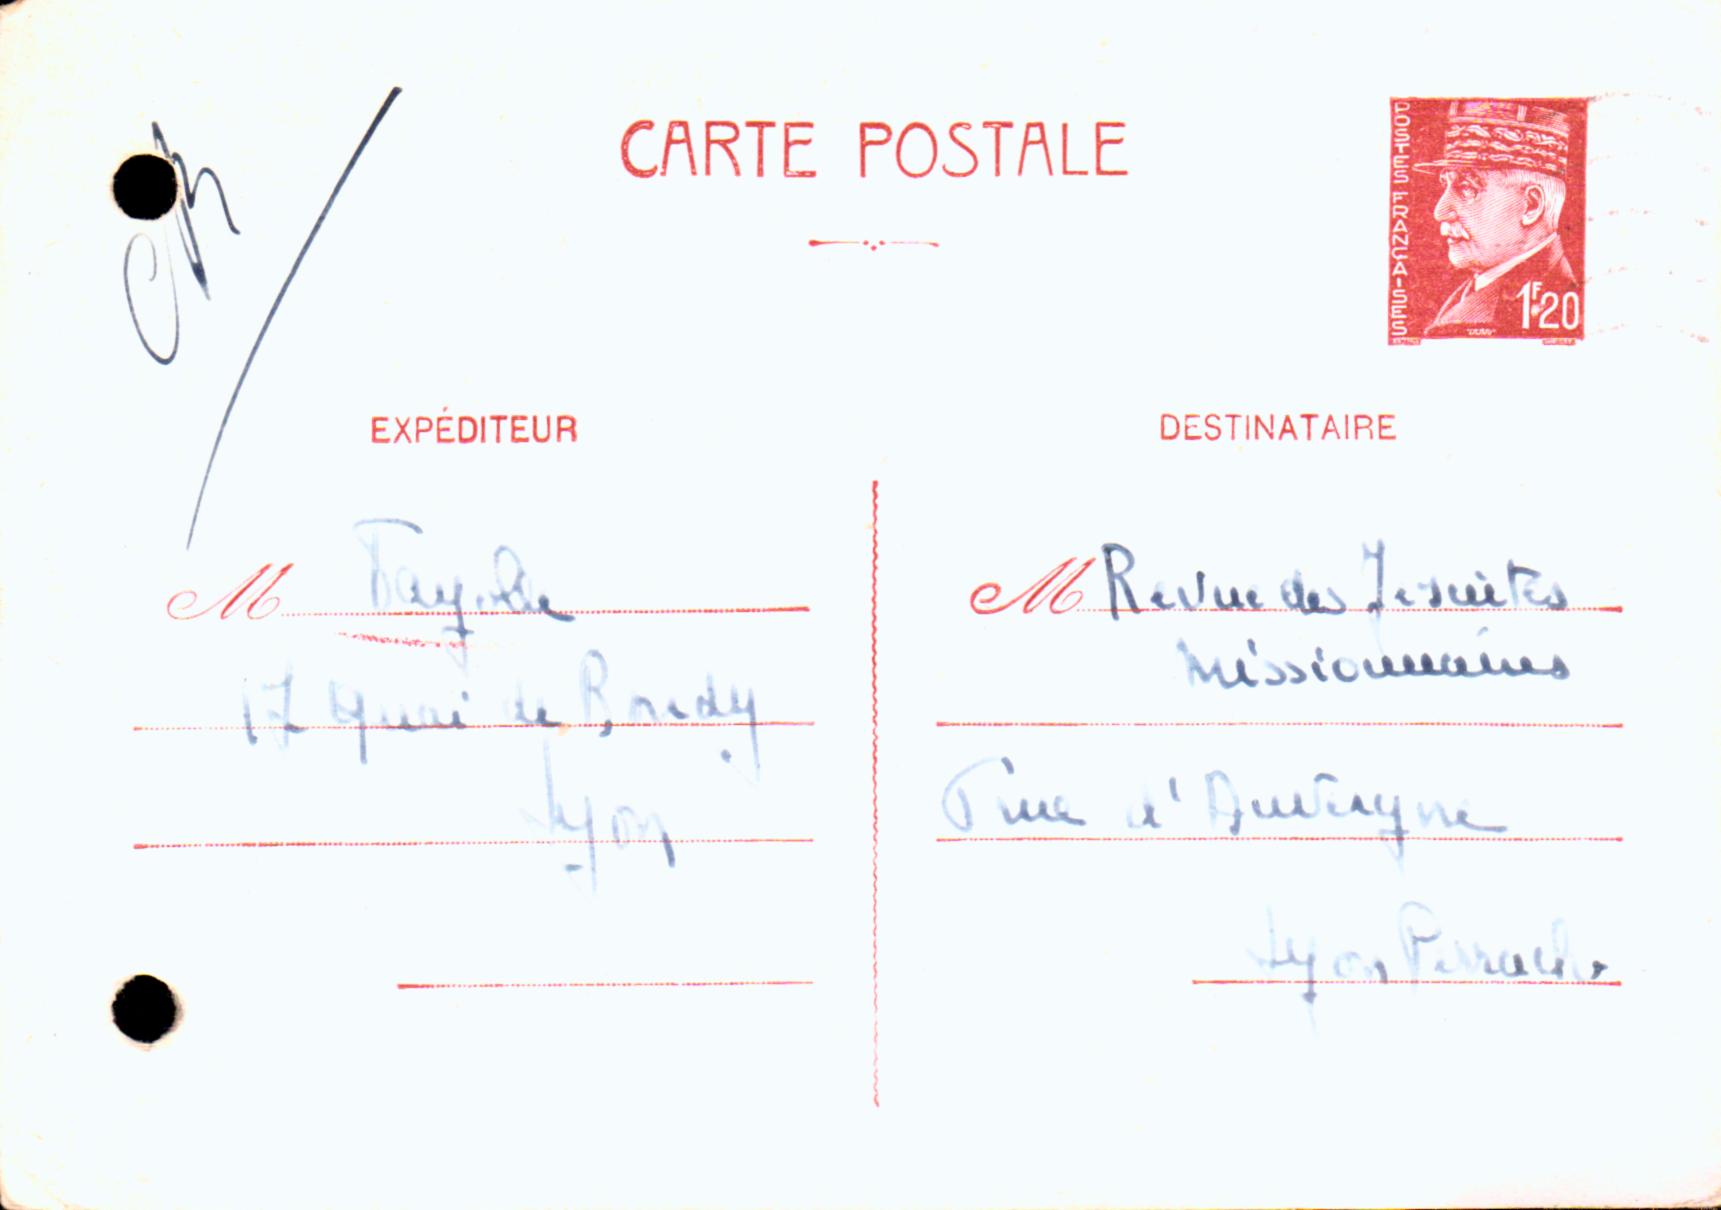 CARTE POSTALE
POSTES FRANÇAISES
1F20
EXPÉDITEUR
M Fayolle
17 Quai de Bondy
Lyon
DESTINATAIRE
M Revue des Jesuites
Missionnaires
rue d'Auvergne
Lyon Perrache